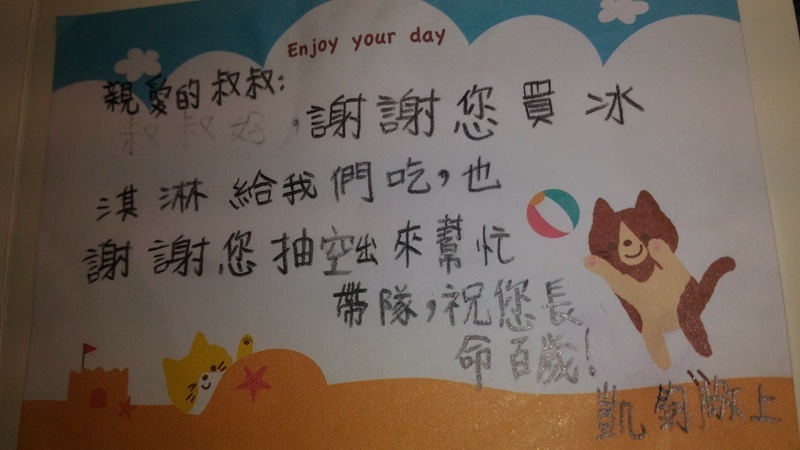 Enjoy your day
親愛的叔叔:
叔叔好,謝謝您買冰
淇淋給我們吃,也
謝謝您抽空出來幫忙
帶隊,祝您長
命百歲!
凱 敬上